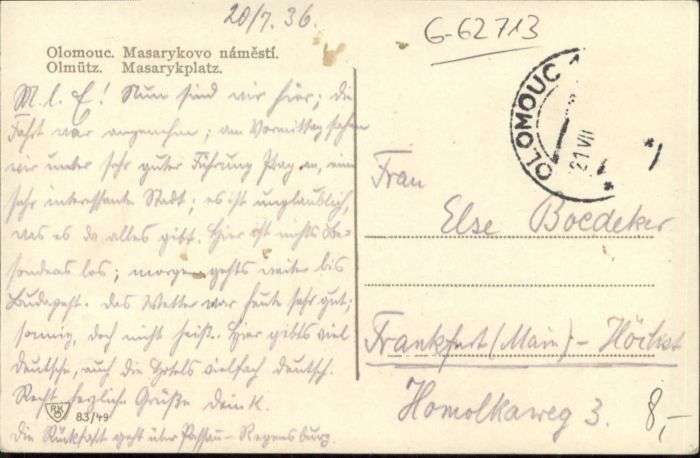 20/7. 36.
G-62713
Olomouc. Masarykovo náměstí.
Olmütz. Masarykplatz.
M. l. E! Nun sind wir hier; die
Fahrt war angenehm; am Vormittag sahen
wir unter sehr guter Führung Prag an, eine
sehr interessante Stadt; es ist unglaublich,
was es da alles gibt. Hier ist nichts Be-
sonderes los; morgen gehts weiter bis
Budapest. Das Wetter war heute sehr gut;
sonnig, doch nicht heiß. Hier gibts viel
Deutsche, auch die Hotels vielfach deutsch.
Recht herzliche Grüße dein K.
Die Rückfahrt geht über Passau-Regensburg.
RK
83/49
OLOMOUC
21 VII
Frau
Else Boedeker
Frankfurt (Main) - Höchst
Homolkaweg 3.
8,-